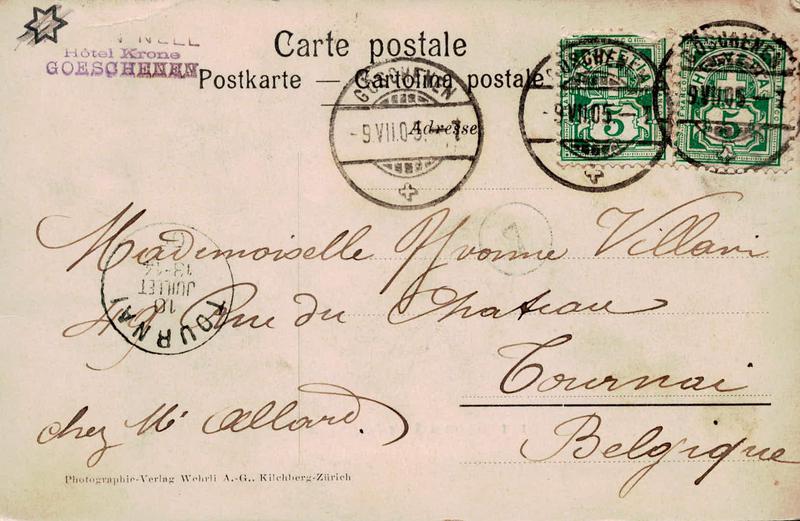 NELL
Hôtel Krone
GOESCHENEN
Carte postale
Postkarte — Cartolina postale
Adresse
GÖSCHENEN
-9.VII.05.-7
GÖSCHENEN
-9.VII.05.-7
5
GÖSCHENEN
9VII05-7
5
HELVETIA
Mademoiselle Yvonne Villari
49 Rue du Chateau
Tournai
chez Mr Allard.
Belgique
TOURNAI
10
JUILLET
13-14
Photographie-Verlag Wehrli A.-G., Kilchberg-Zürich